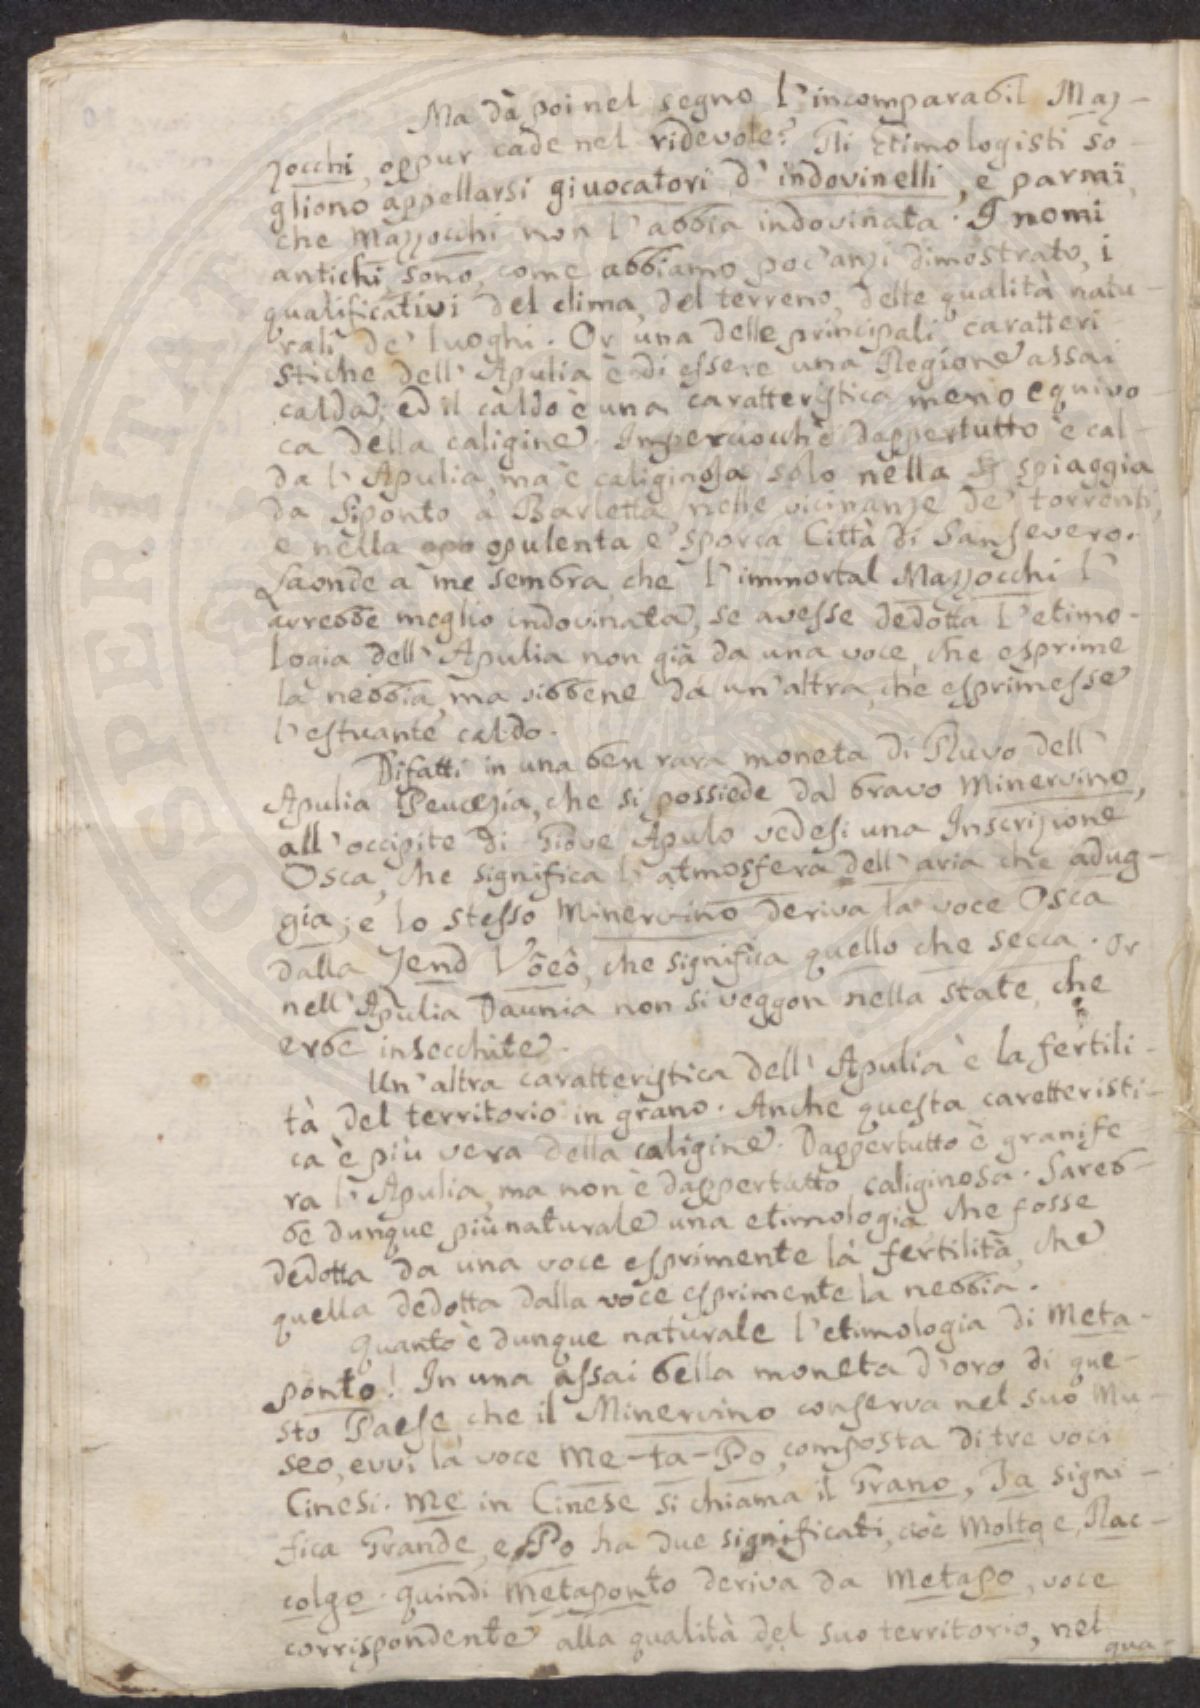 Ma dà poi nel segno l'incomparabil Maz-
zocchi, oppur cade nel ridevole? Gli Etimologisti so-
gliono appellarsi giuocatori d'indovinelli, e parmi,
che Mazzocchi non l'abbia indovinata. I nomi
antichi sono, come abbiamo poc'anzi dimostrato, i
qualificativi del clima, del terreno, delle qualità natu-
rali de' luoghi. Or una delle principali caratteri
stiche dell'Apulia è di essere una Regione assai
calda; ed il caldo è una caratteristica meno equivo-
ca della caligine. Imperciocchè dappertutto è cal-
da l'Apulia, ma è caliginosa solo nella spiaggia
da Siponto a Barletta, nelle vicinanze de' torrenti,
e nella opulenta e sporca Città di Sansevero.
Laonde a me sembra, che l'immortal Mazzocchi l'
avrebbe meglio indovinata, se avesse dedotta l'etimo-
logia dell'Apulia non già da una voce, che esprime
la nebbia, ma sibbene da un'altra, che esprimesse
l'estuante caldo.
Difatti in una ben rara moneta di Ruvo dell'
Apulia Peucezia, che si possiede dal bravo Minervino,
all'occipite di Giove Apulo vedesi una Inscrizione
Osca, che significa l'atmosfera dell'aria che adug-
gia; e lo stesso Minervino deriva la voce Osca
dalla Zend Võeô, che significa quello che secca. Or
nell'Apulia Daunia non si veggon nella state, che
erbe insecchite.
Un'altra caratteristica dell'Apulia è la fertili-
tà del territorio in grano. Anche questa caretteristi-
ca è più vera della caligine. Dappertutto è granife
ra l'Apulia, ma non è dappertutto caliginosa. Sareb-
be dunque più naturale una etimologia, che fosse
dedotta da una voce esprimente la fertilità, che
quella dedotta dalla voce esprimente la nebbia.
Quanto è dunque naturale l'etimologia di Meta-
ponto! In una assai bella moneta d'oro di que-
sto Paese, che il Minervino conserva nel suo Mu-
seo, evvi la voce Me-ta-Po, composta di tre voci
Cinesi. Me in Cinese si chiama il Grano, Ta signi-
fica Grande, e Po ha due significati, cioè Molto, e Rac-
colgo. Quindi Metaponto deriva da Metapo, voce
corrispondente alla qualità del suo territorio, nel
qua-
PROSPERITATI